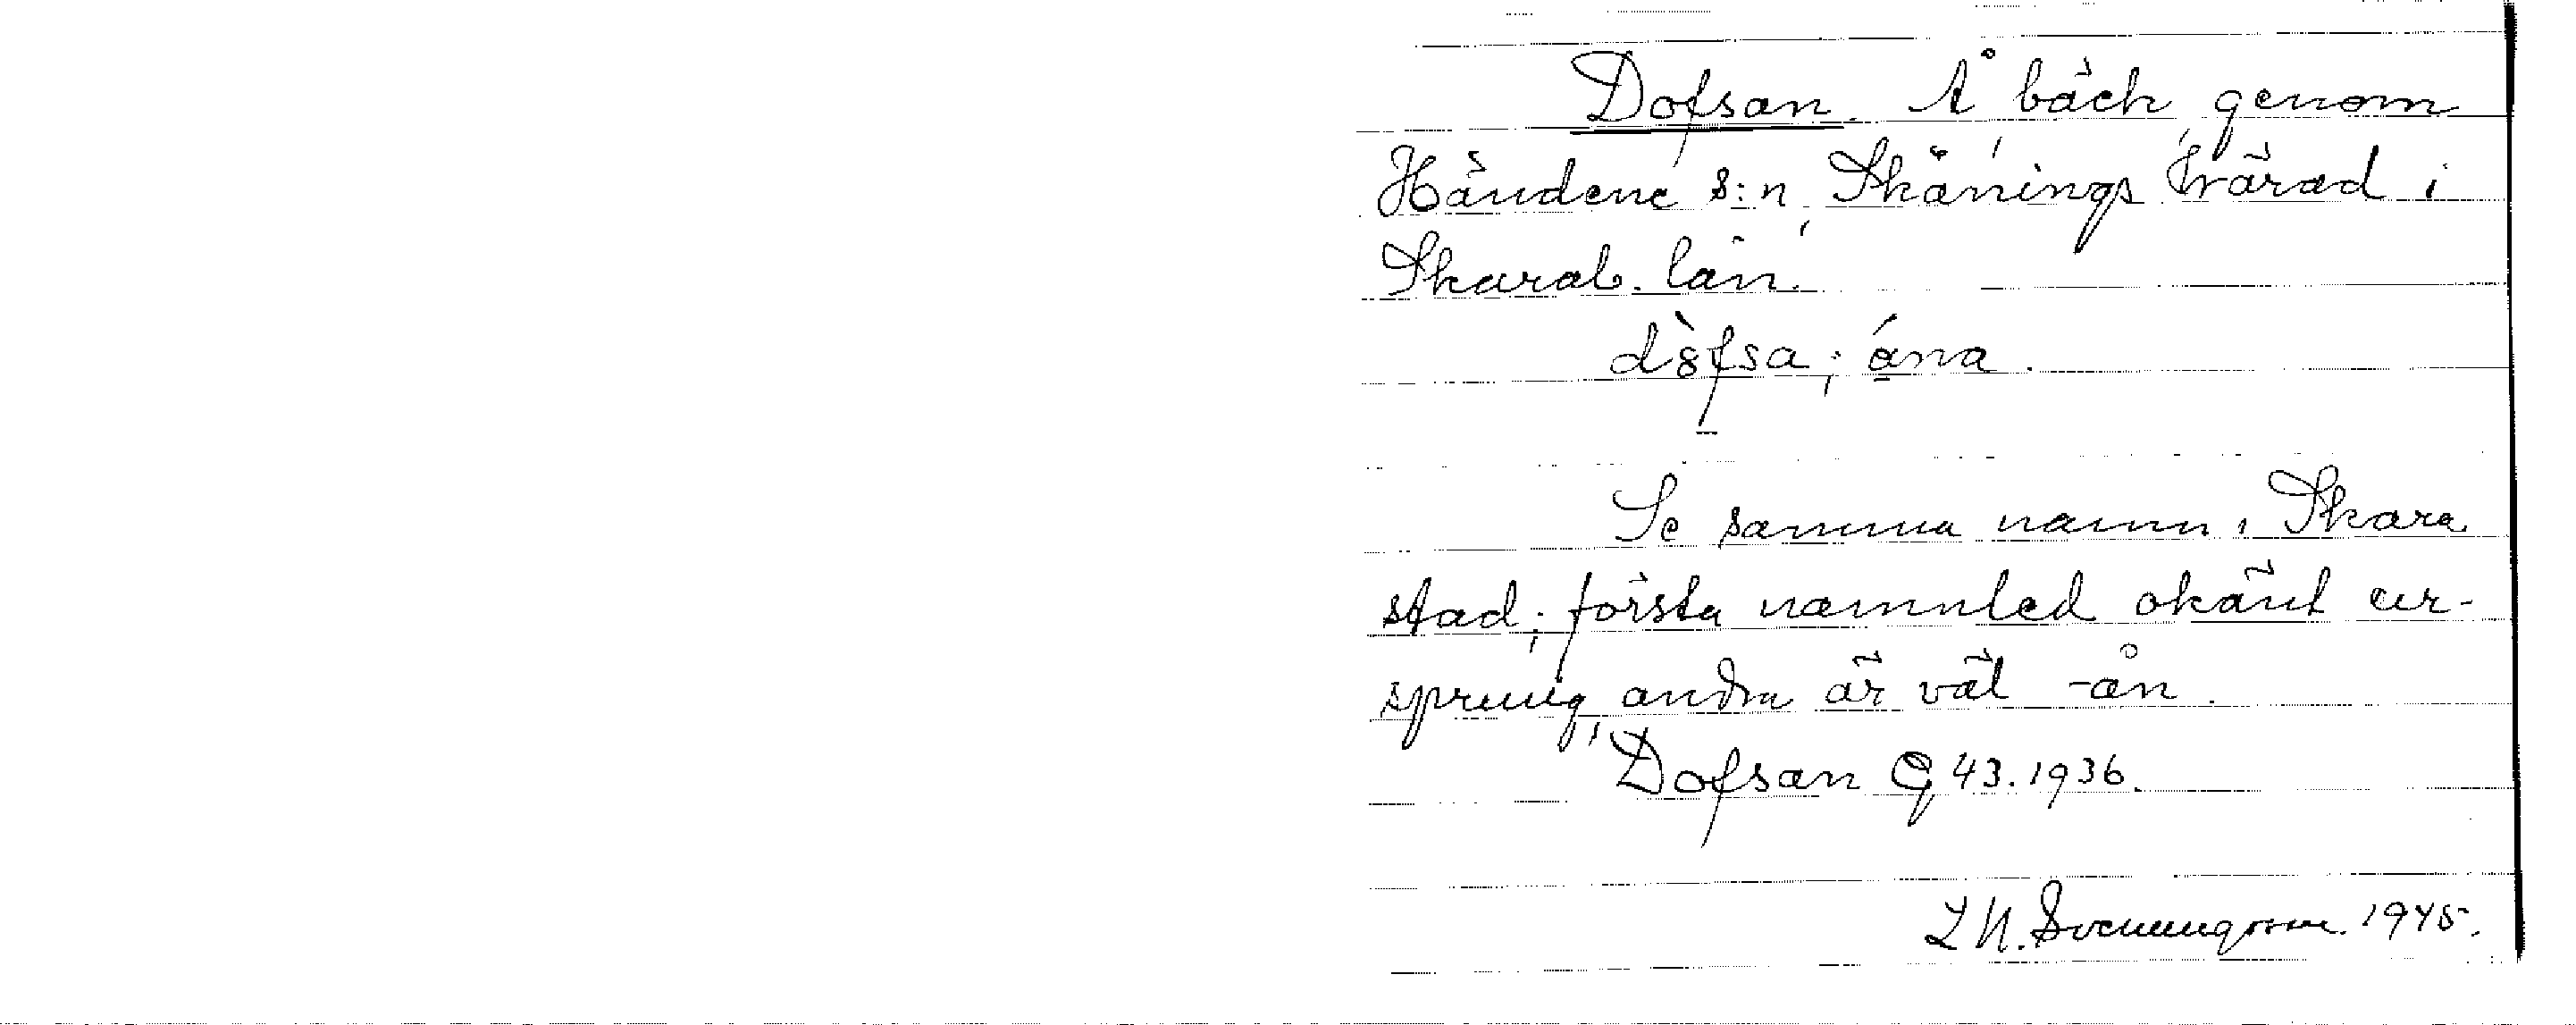 Dofsan. Å bäck genom
Händene s:n, Skånings härad i
Skarab. län.
dofsa; åna.
Se samma namn, Skara
stad; första namnled okänt ur-
sprung, andra är väl -ån.
Dofsan G 43. 1936.
1945.